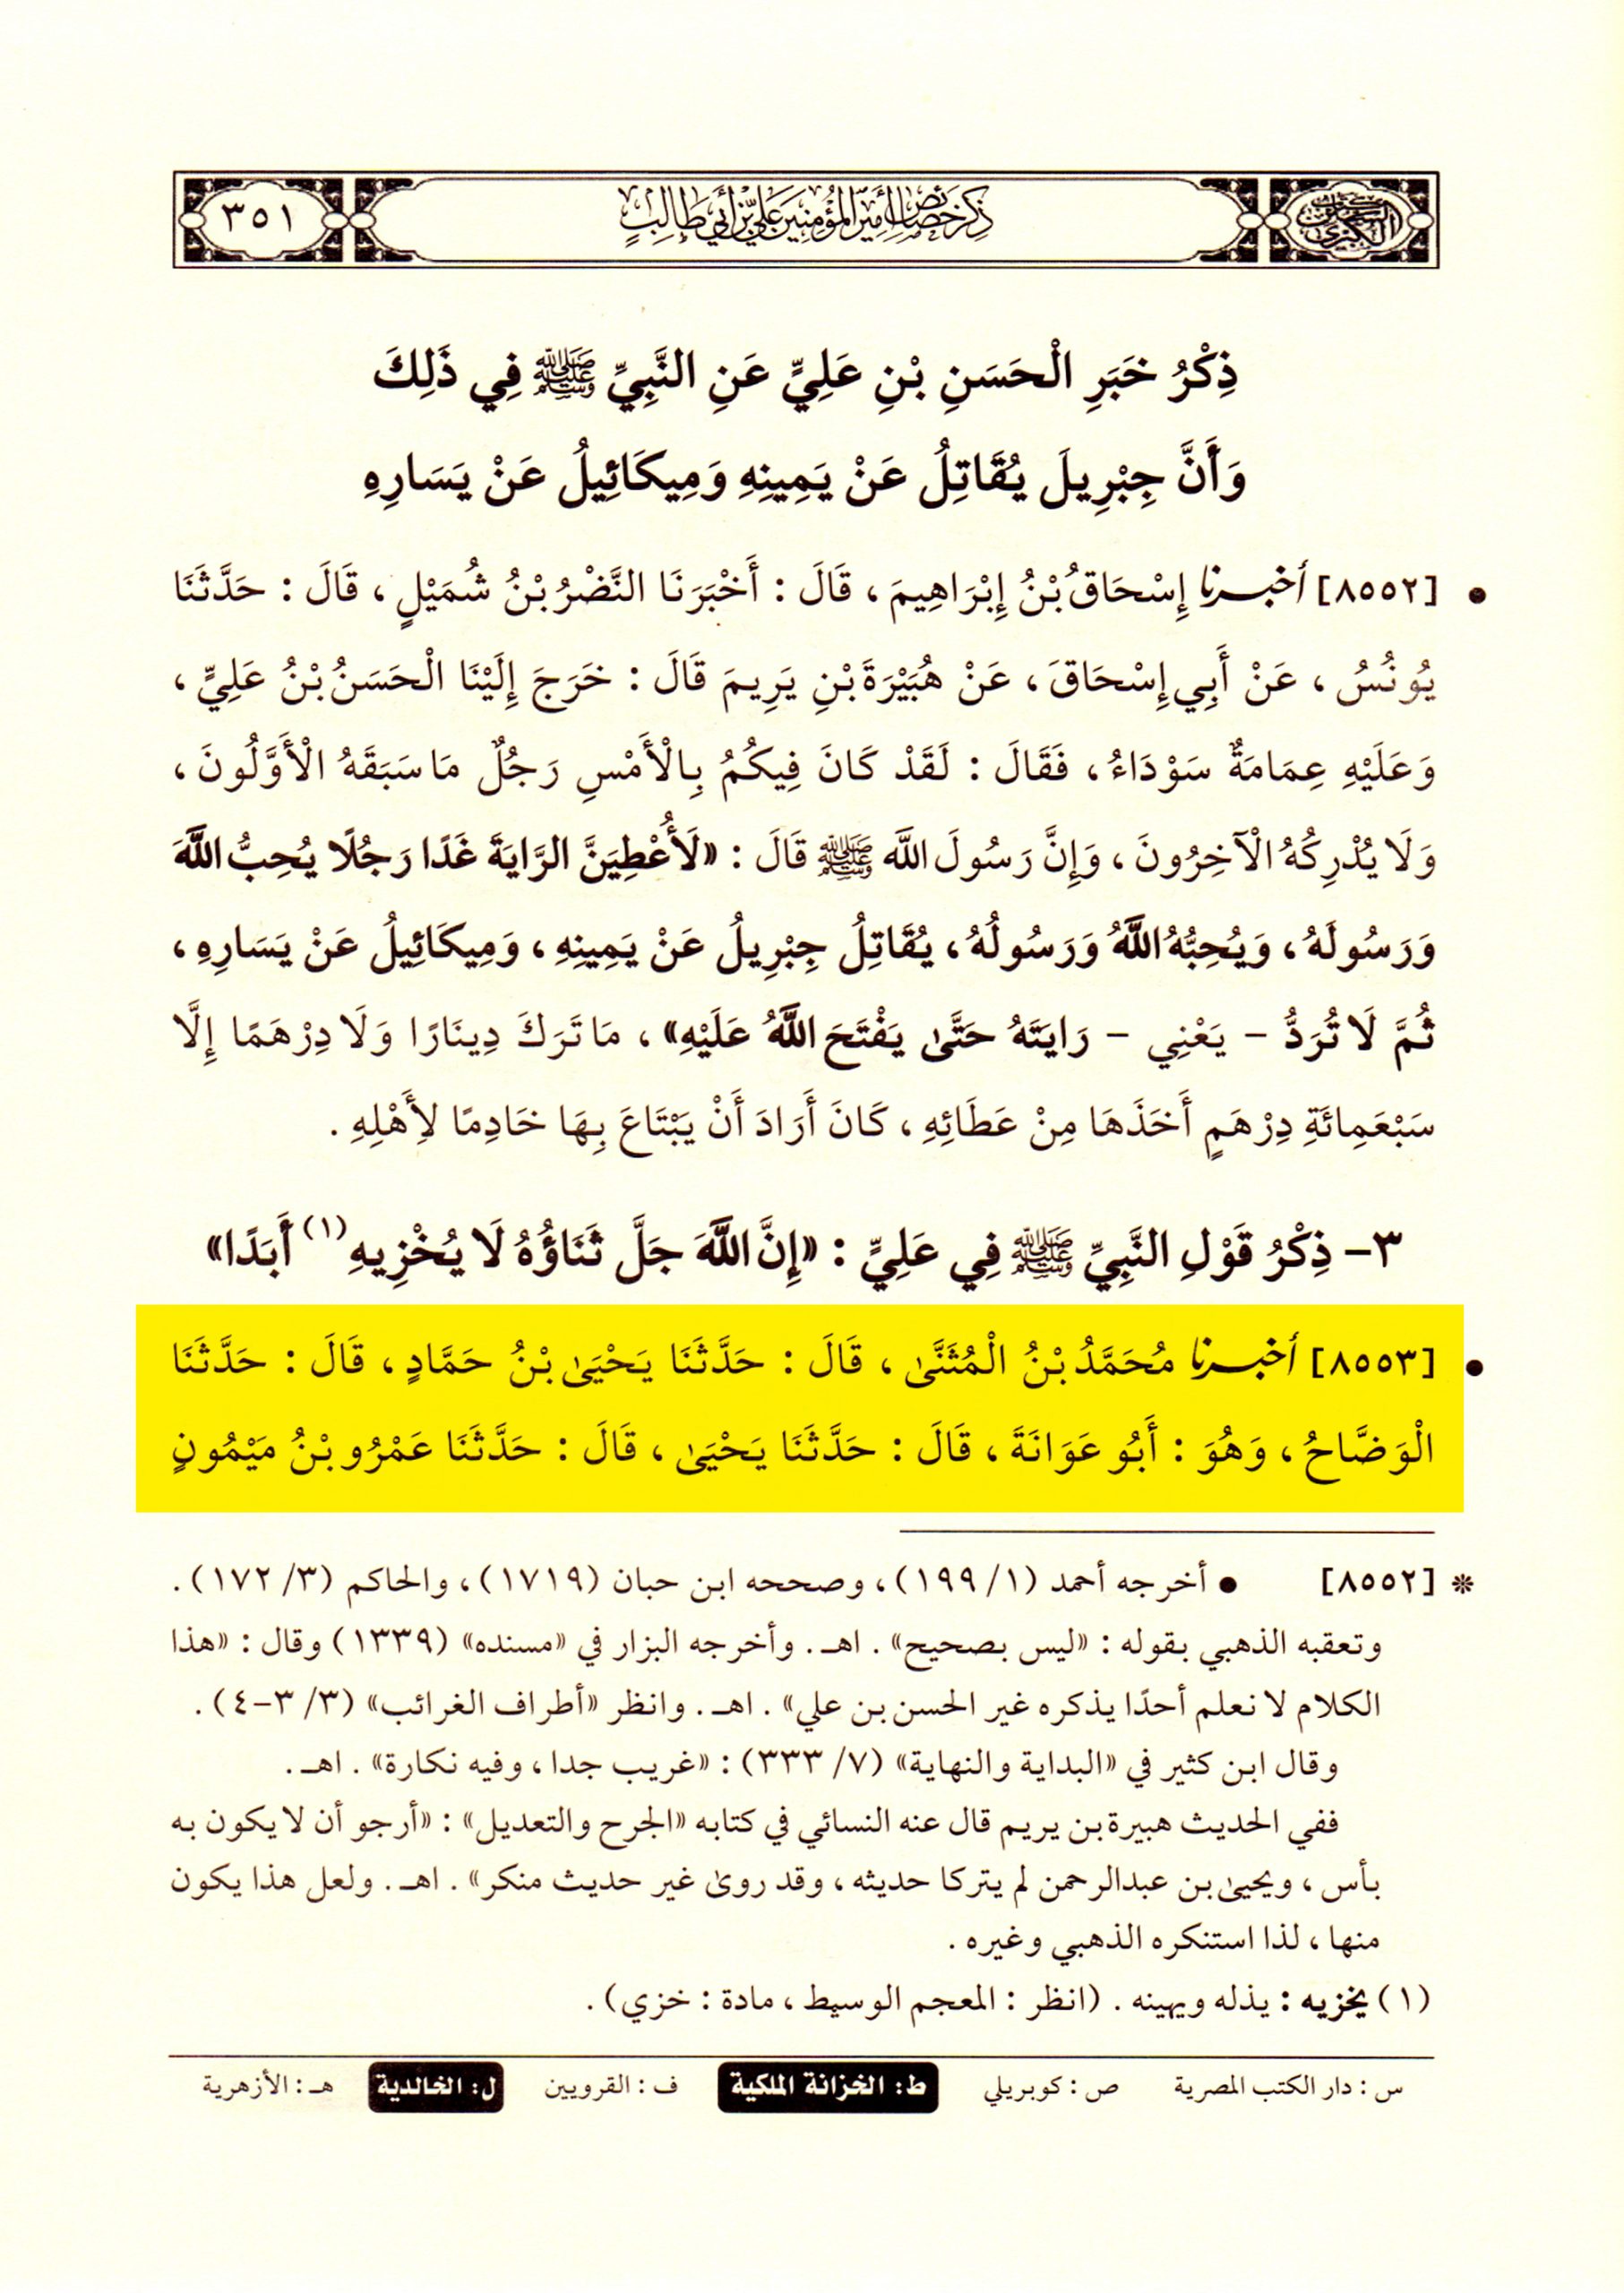 السنن الكبرى
ذكر خصائص أمير المؤمنين علي بن أبي طالب
٣٥١
ذِكْرُ خَبَرِ الْحَسَنِ بْنِ عَلِيٍّ عَنِ النَّبِيِّ ﷺ فِي ذَلِكَ
وَأَنَّ جِبْرِيلَ يُقَاتِلُ عَنْ يَمِينِهِ وَمِيكَائِيلُ عَنْ يَسَارِهِ
• [٨٥٥٢] أخبرنا إِسْحَاقُ بْنُ إِبْرَاهِيمَ، قَالَ: أَخْبَرَنَا النَّضْرُ بْنُ شُمَيْلٍ، قَالَ: حَدَّثَنَا
يُونُسُ، عَنْ أَبِي إِسْحَاقَ، عَنْ هُبَيْرَةَ بْنِ يَرِيمَ قَالَ: خَرَجَ إِلَيْنَا الْحَسَنُ بْنُ عَلِيٍّ،
وَعَلَيْهِ عِمَامَةٌ سَوْدَاءُ، فَقَالَ: لَقَدْ كَانَ فِيكُمُ بِالْأَمْسِ رَجُلٌ مَا سَبَقَهُ الْأَوَّلُونَ،
وَلَا يُدْرِكُهُ الْآخِرُونَ، وَإِنَّ رَسُولَ اللَّهِ ﷺ قَالَ: «لَأُعْطِيَنَّ الرَّايَةَ غَدًا رَجُلًا يُحِبُّ اللَّهَ
وَرَسُولَهُ، وَيُحِبُّهُ اللَّهُ وَرَسُولُهُ، يُقَاتِلُ جِبْرِيلُ عَنْ يَمِينِهِ، وَمِيكَائِيلُ عَنْ يَسَارِهِ،
ثُمَّ لَا تُرَدُّ - يَعْنِي - رَايَتَهُ حَتَّى يَفْتَحَ اللَّهُ عَلَيْهِ»، مَا تَرَكَ دِينَارًا وَلَا دِرْهَمًا إِلَّا
سَبْعَمِائَةِ دِرْهَمٍ أَخَذَهَا مِنْ عَطَائِهِ، كَانَ أَرَادَ أَنْ يَبْتَاعَ بِهَا خَادِمًا لِأَهْلِهِ.
٣- ذِكْرُ قَوْلِ النَّبِيِّ ﷺ فِي عَلِيٍّ: «إِنَّ اللَّهَ جَلَّ ثَنَاؤُهُ لَا يُخْزِيهِ(١) أَبَدًا»
• [٨٥٥٣] أخبرنا مُحَمَّدُ بْنُ الْمُثَنَّى، قَالَ: حَدَّثَنَا يَحْيَى بْنُ حَمَّادٍ، قَالَ: حَدَّثَنَا
الْوَضَّاحُ، وَهُوَ: أَبُو عَوَانَةَ، قَالَ: حَدَّثَنَا يَحْيَى، قَالَ: حَدَّثَنَا عَمْرُو بْنُ مَيْمُونٍ
* [٨٥٥٢] • أخرجه أحمد (١/ ١٩٩)، وصححه ابن حبان (١٧١٩)، والحاكم (٣/ ١٧٢).
وتعقبه الذهبي بقوله: «ليس بصحيح». اهـ. وأخرجه البزار في «مسنده» (١٣٣٩) وقال: «هذا
الكلام لا نعلم أحدًا يذكره غير الحسن بن علي». اهـ. وانظر «أطراف الغرائب» (٣/ ٣-٤).
وقال ابن كثير في «البداية والنهاية» (٧/ ٣٣٣): «غريب جدا، وفيه نكارة». اهـ.
ففي الحديث هبيرة بن يريم قال عنه النسائي في كتابه «الجرح والتعديل»: «أرجو أن لا يكون به
بأس، ويحيى بن عبدالرحمن لم يتركا حديثه، وقد روى غير حديث منكر». اهـ. ولعل هذا يكون
منها، لذا استنكره الذهبي وغيره.
(١) يخزيه: يذله ويهينه. (انظر: المعجم الوسيط، مادة: خزي).
س: دار الكتب المصرية ص: كوبريلي ط: الخزانة الملكية ف: القرويين ل: الخالدية هـ: الأزهرية